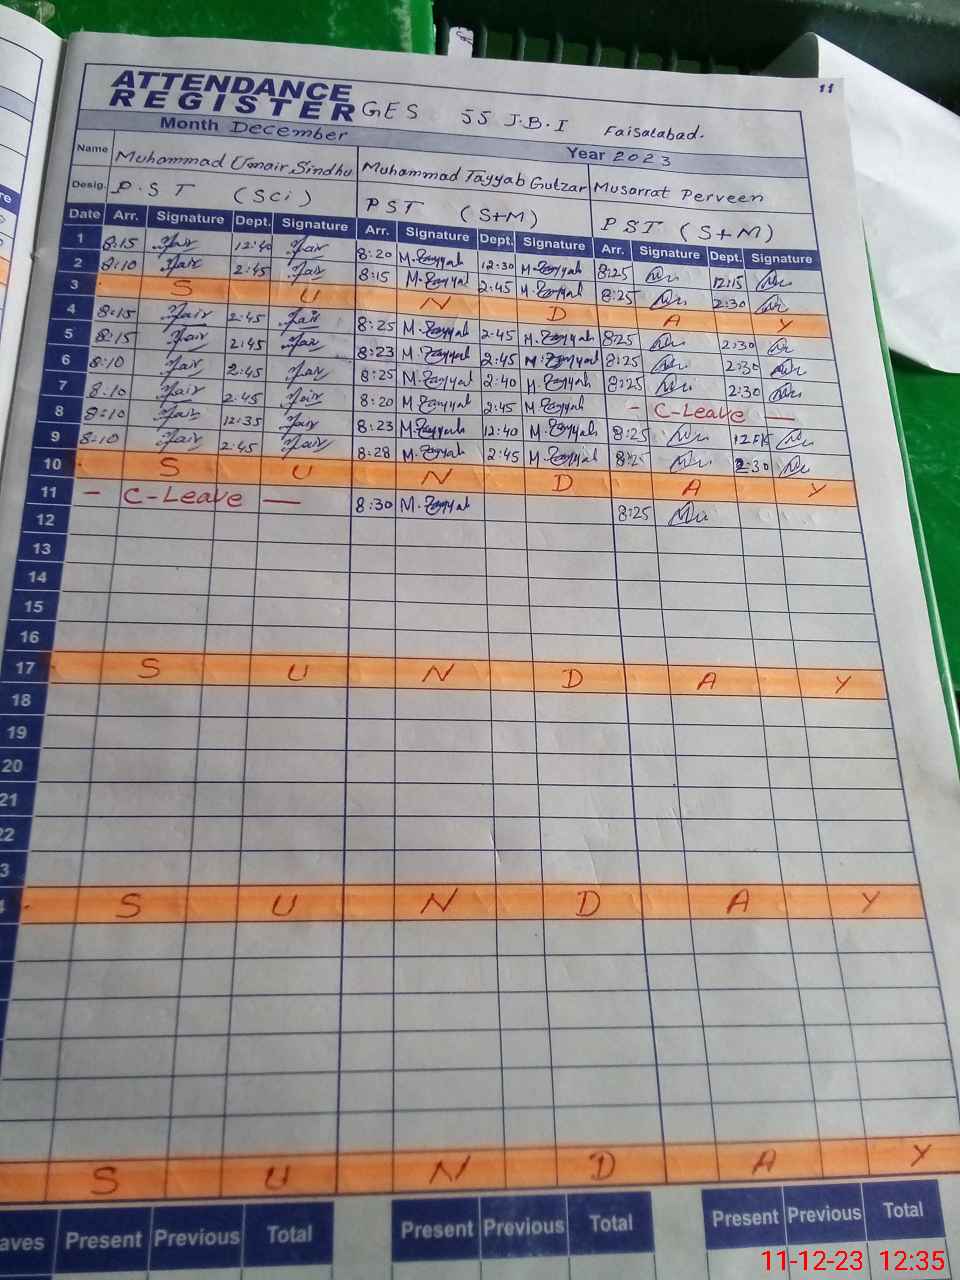 11
ATTENDANCE
REGISTER GES 55 J.B.I Faisalabad.
Month December Year 2023
Name Muhammad Umair Sindhu Muhammad Tayyab Gulzar Musarrat Perveen
Desig. P.S.T (Sci) PST (S+M) PST (S+M)
Date Arr. Signature Dept. Signature Arr. Signature Dept. Signature Arr. Signature Dept. Signature
1 8:15 12:40 8:20 M.Tayyab 12:30 M.Tayyab 8:25 12:15
2 8:10 2:45 8:15 M.Tayyab 2:45 M.Tayyab 8:25 2:30
3 S U N D A Y
4 8:15 2:45 8:25 M.Tayyab 2:45 M.Tayyab 8:25 2:30
5 8:15 2:45 8:23 M.Tayyab 2:45 M.Tayyab 8:25 2:30
6 8:10 2:45 8:25 M.Tayyab 2:40 M.Tayyab 8:25 2:30
7 8:10 2:45 8:20 M.Tayyab 2:45 M.Tayyab - C-Leave -
8 8:10 12:35 8:23 M.Tayyab 12:40 M.Tayyab 8:25
9 8:10 2:45 8:28 M.Tayyab 2:45 M.Tayyab 8:25 2:30
10 S U N D A Y
11 - C-Leave - 8:30 M.Tayyab 8:25
12
13
14
15
16
17 S U N D A Y
18
19
20
21
22
3
4 S U N D A Y
S U N D A Y
aves Present Previous Total Present Previous Total Present Previous Total
11-12-23 12:35